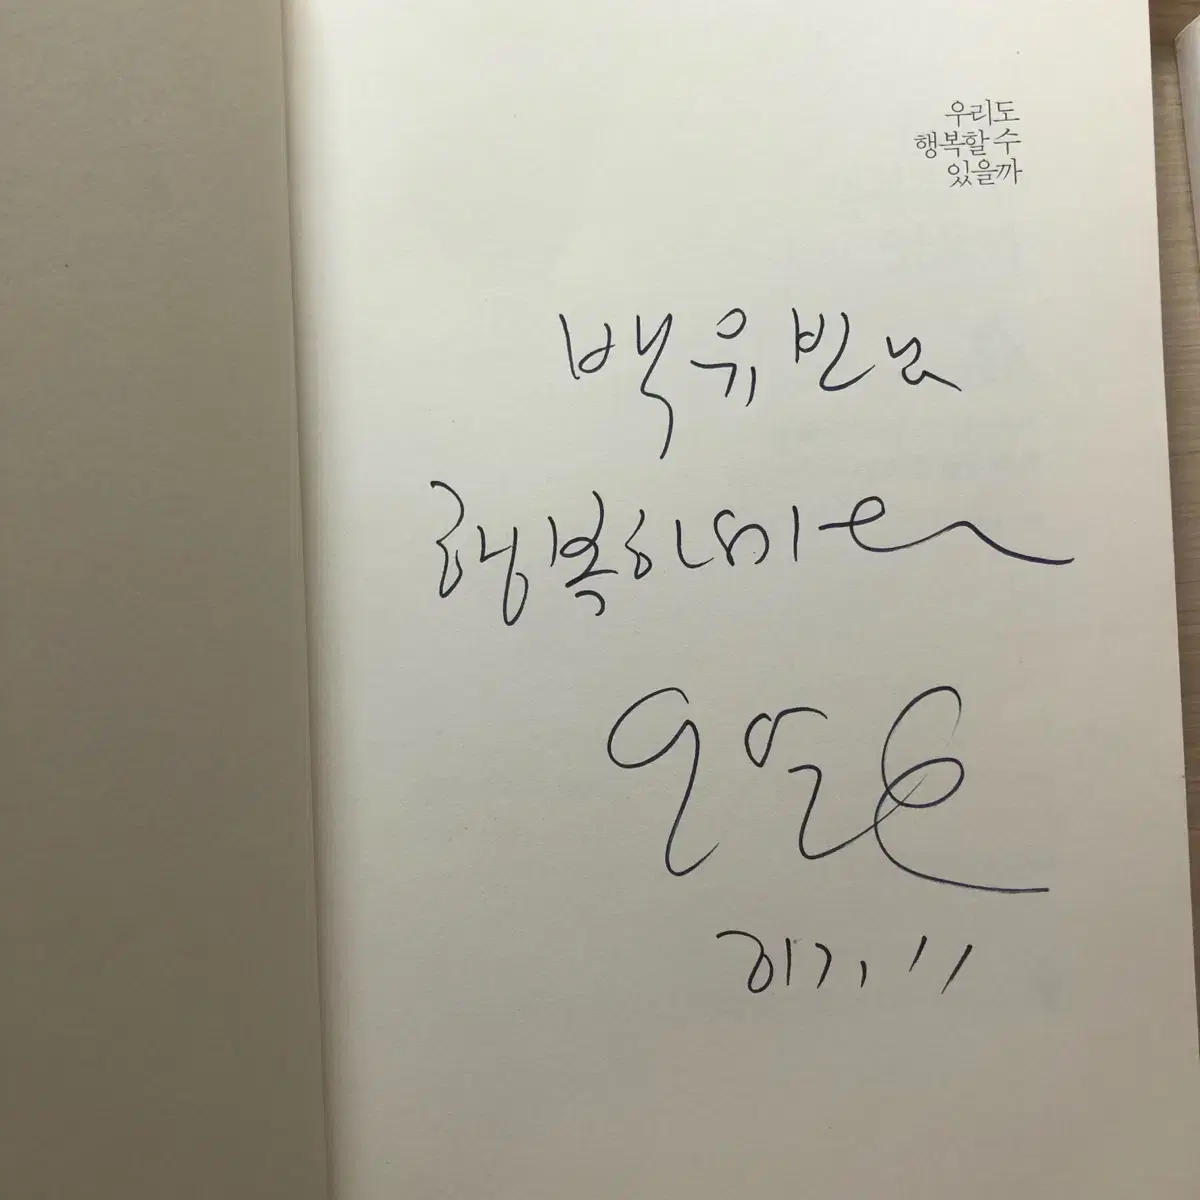 우리도
행복할 수
있을까
백유빈님
행복하세요
오연호
2017. 11